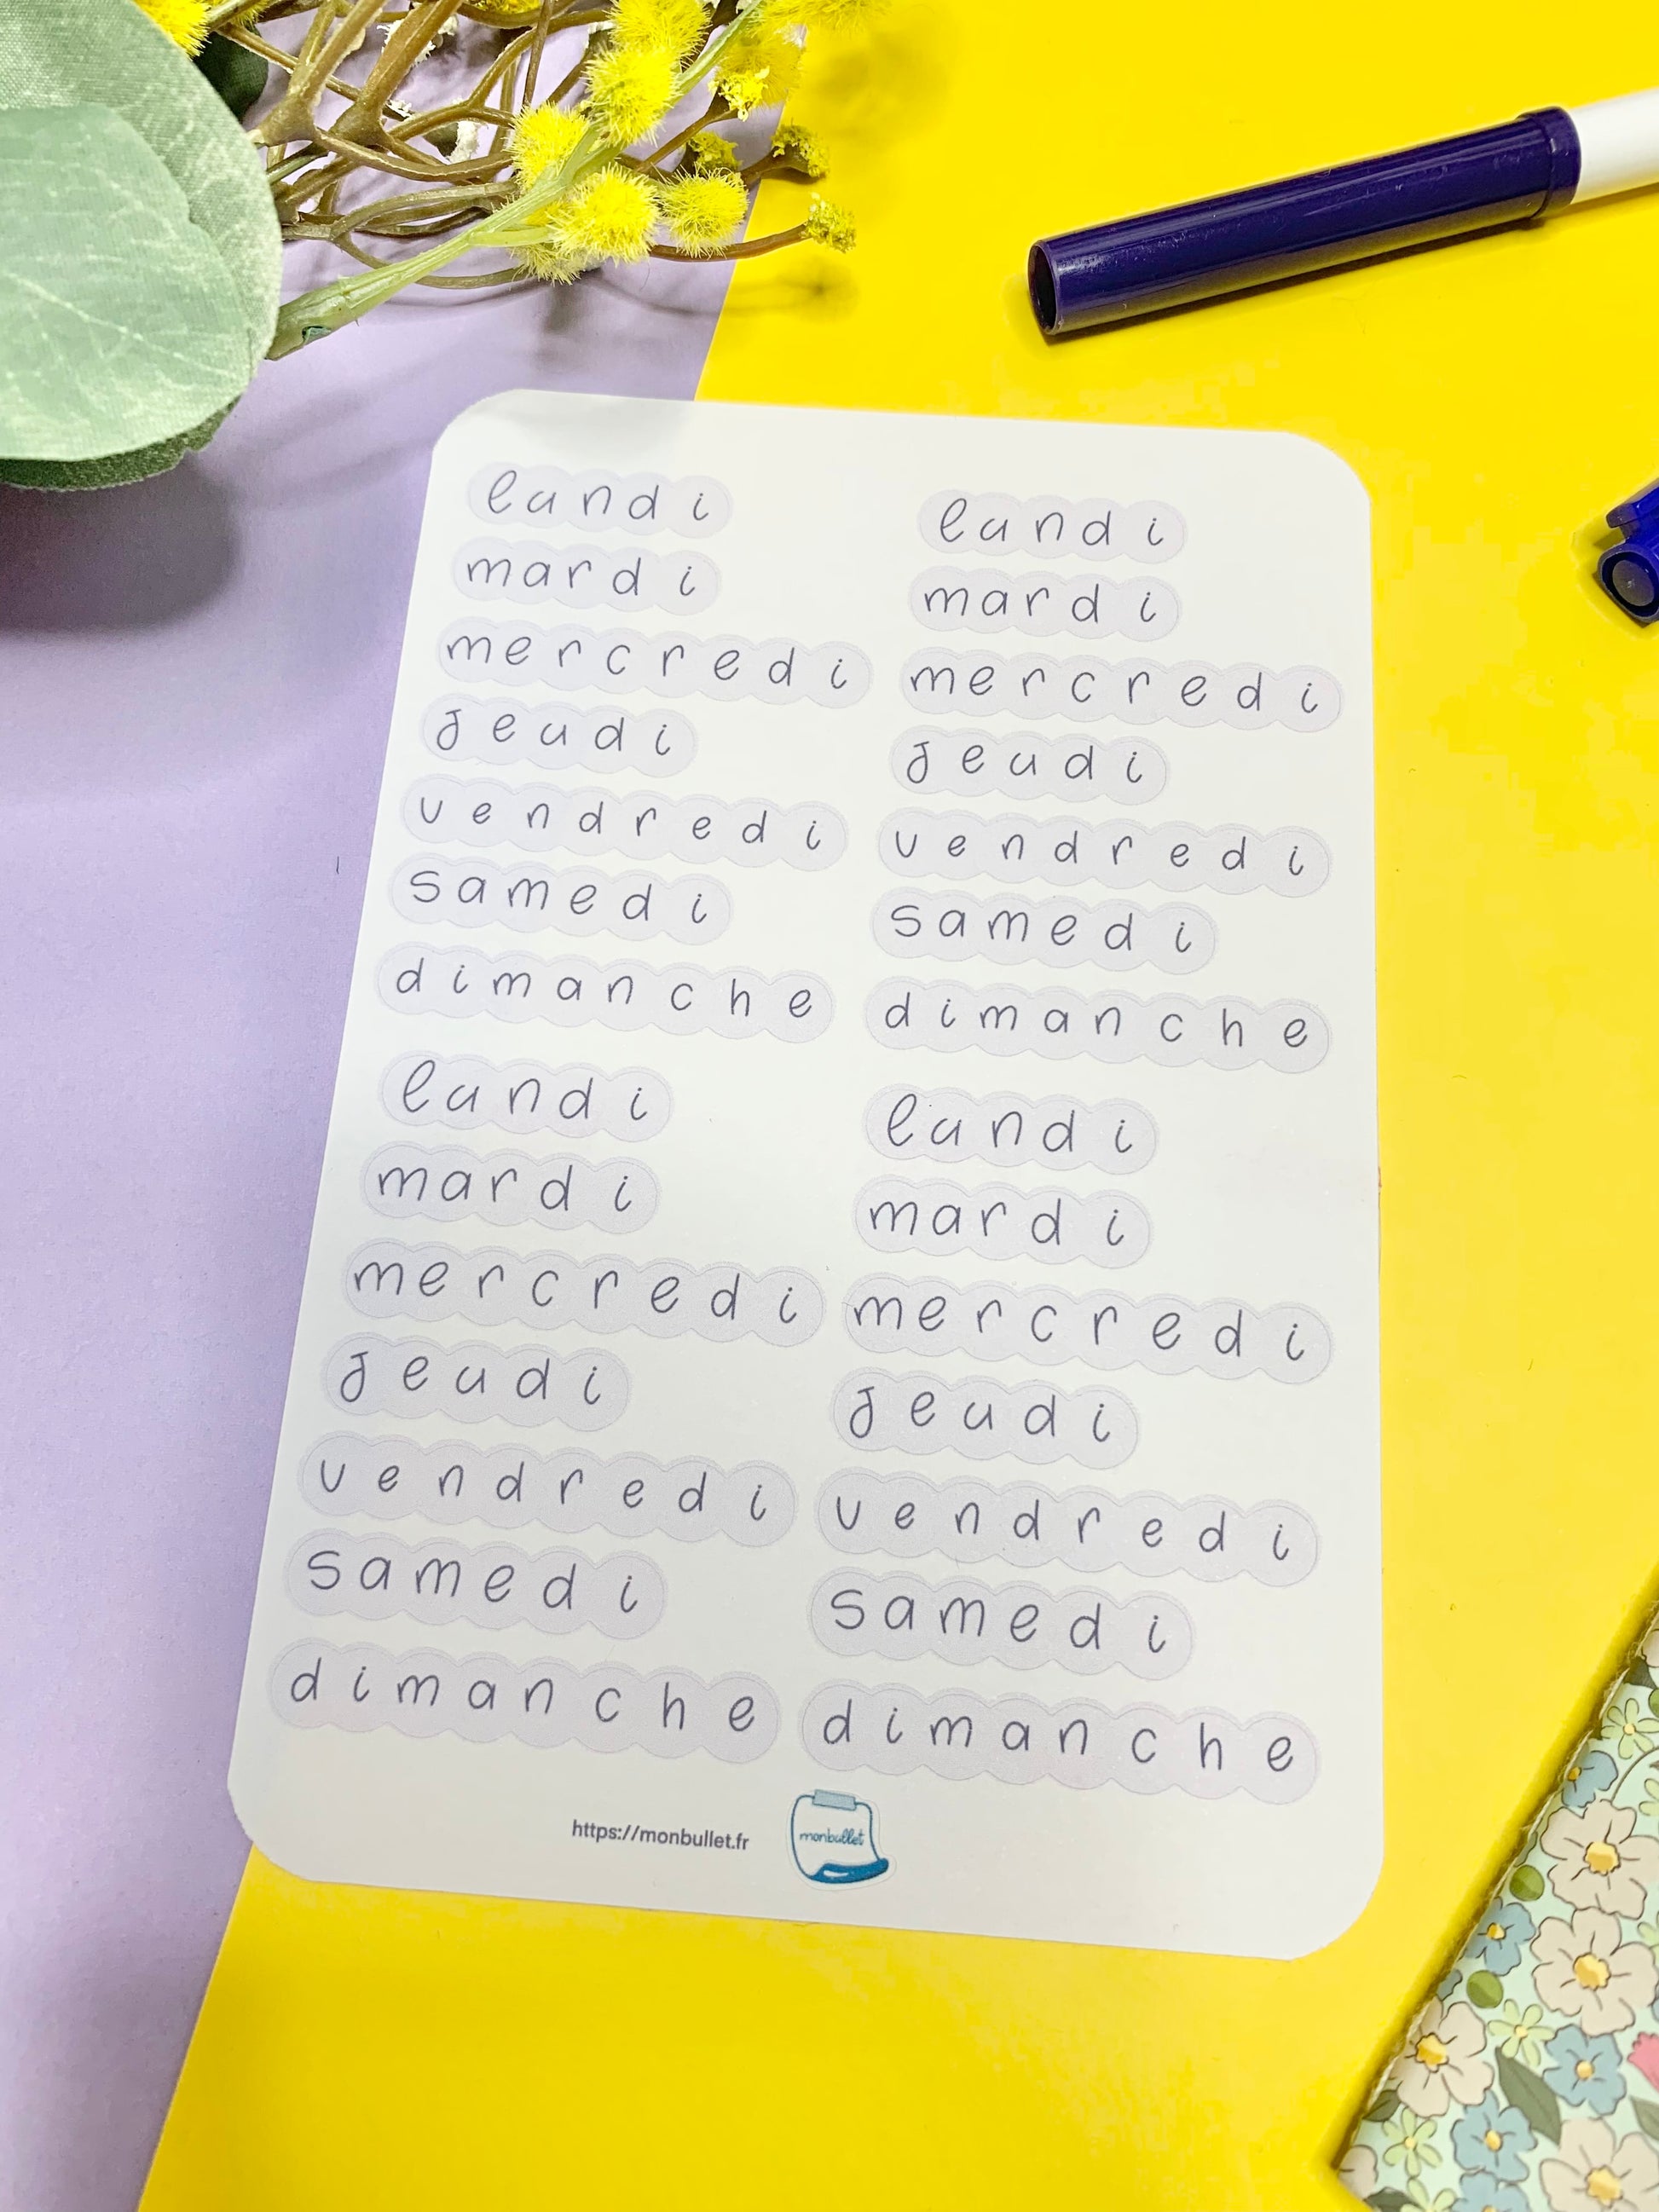 lundi
mardi
mercredi
jeudi
vendredi
samedi
dimanche
lundi
mardi
mercredi
jeudi
vendredi
samedi
dimanche
lundi
mardi
mercredi
jeudi
vendredi
samedi
dimanche
lundi
mardi
mercredi
jeudi
vendredi
samedi
dimanche
https://monbullet.fr
monbullet